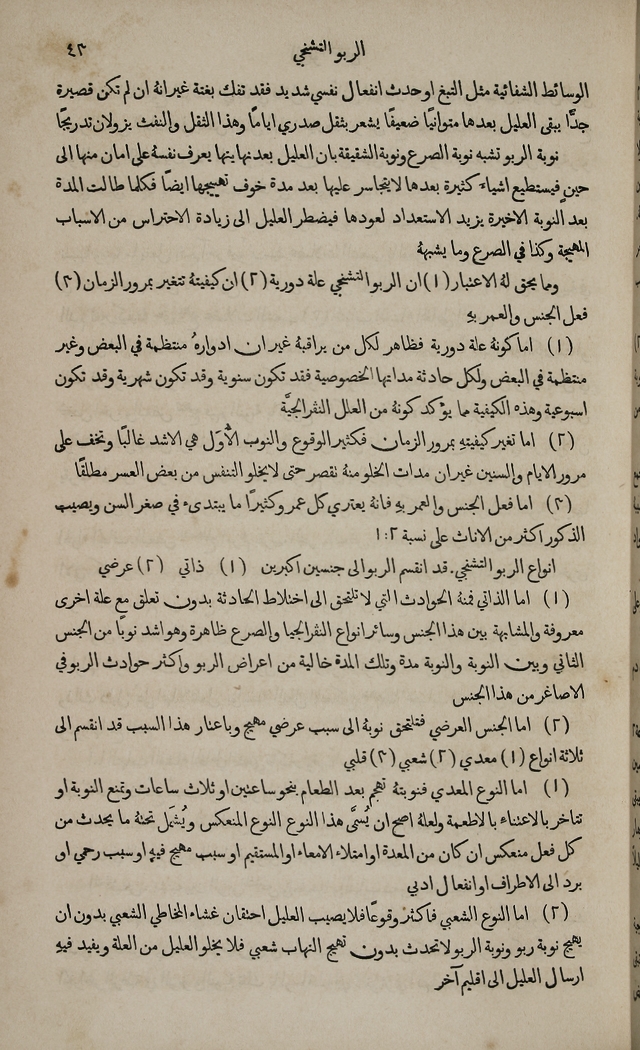 الربو التشنجي ٤٣
الوسائط الشفائية مثل التبغ او حدث انفعال نفسي شديد فقد تفك بغتة غير انهُ ان لم تكن قصيرة
جدًّا يبقى العليل بعدها متوانيًا ضعيفًا يشعر بثقل صدري ايامًا وهذا الثقل والنفث يزولان تدريجًا
نوبة الربو تشبه نوبة الصرع ونوبة الشقيقة بان العليل بعد نهايتها يعرف نفسهُ على امان منها الى
حينٍ فيستطيع اشياء كثيرة بعدها لا يتجاسر عليها بعد مدة خوف تهييجها ايضًا فكلما طالت المدة
بعد النوبة الاخيرة يزيد الاستعداد لعودها فيضطر العليل الى زيادة الاحتراس من الاسباب
المهيجة وكذا في الصرع وما يشبههُ
ومما يحق لهُ الاعتبار (١) ان الربو التشنجي علة دورية (٢) ان كيفيتهُ تتغير بمرور الزمان (٣)
فعل الجنس والعمر بهِ
(١) اما كونهُ علة دورية فظاهر لكل من يراقبهُ غير ان ادوارهُ منتظمة في البعض وغير
منتظمة في البعض ولكل حادثة مداتها الخصوصية فقد تكون سنوية وقد تكون شهرية وقد تكون
اسبوعية وهذه الكيفية مما يؤكد كونهُ من العلل النڤرالجيَّة
(٢) اما تغير كيفيتهِ بمرور الزمان فكثير الوقوع والنوب الأُوَل هي الاشد غالبًا وتخف على
مرور الايام والسنين غير ان مدات الخلو منهُ تقصر حتى لا يخلو التنفس من بعض العسر مطلقًا
(٣) اما فعل الجنس والعمر بهِ فانهُ يعتري كل عمر وكثيرًا ما يبتدىء في صغر السن ويصيب
الذكور اكثر من الاناث على نسبة ٢:١
انواع الربو التشنجي. قد انقسم الربو الى جنسين اكبرين (١) ذاتي (٢) عرضي
(١) اما الذاتي فمنهُ الحوادث التي لا تلتحق الى اختلاط الحادثة بدون تعلق مع علة اخرى
معروفة والمشابهة بين هذا الجنس وسائر انواع النڤرالجيا والصرع ظاهرة وهو اشد نوبًا من الجنس
الثاني وبين النوبة والنوبة مدة وتلك المدة خالية من اعراض الربو واكثر حوادث الربو في
الاصاغر من هذا الجنس
(٢) اما الجنس العرضي فتلتحق نوبهُ الى سبب عرضي مهيج وباعتار هذا السبب قد انقسم الى
ثلاثة انواع (١) معدي (٢) شعبي (٣) قلبي
(١) اما النوع المعدي فنوبتهُ تهجم بعد الطعام بنحو ساعتين او ثلاث ساعات وتمنع النوبة او
تتاخر بالاعتناء بالاطعمة ولعلهُ اصح ان يُسمَّى هذا النوع النوع المنعكس ويُشمَل تحتهُ ما يحدث من
كل فعل منعكس ان كان من المعدة او امتلاء الامعاء او المستقيم او سبب مهيج فيهِ او سبب رحمي او
برد الى الاطراف او انفعال ادبي
(٢) اما النوع الشعبي فاكثر وقوعًا فلا يصيب العليل احتقان غشاء المخاطي الشعبي بدون ان
يهيج نوبة ربو ونوبة الربو لا تحدث بدون تهيج التهاب شعبي فلا يخلو العليل من العلة ويفيد فيهِ
ارسال العليل الى اقليم آخر